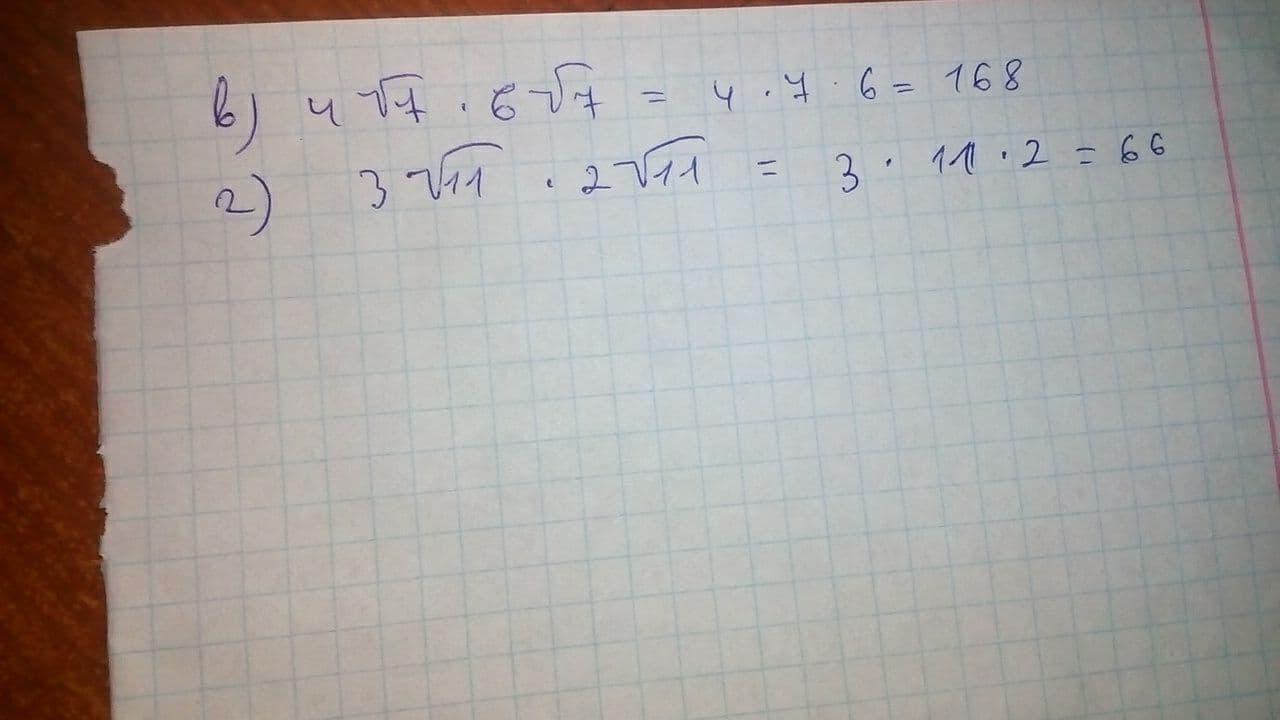 в) 4√7 · 6√7 = 4 · 7 · 6 = 168
г) 3√11 · 2√11 = 3 · 11 · 2 = 66